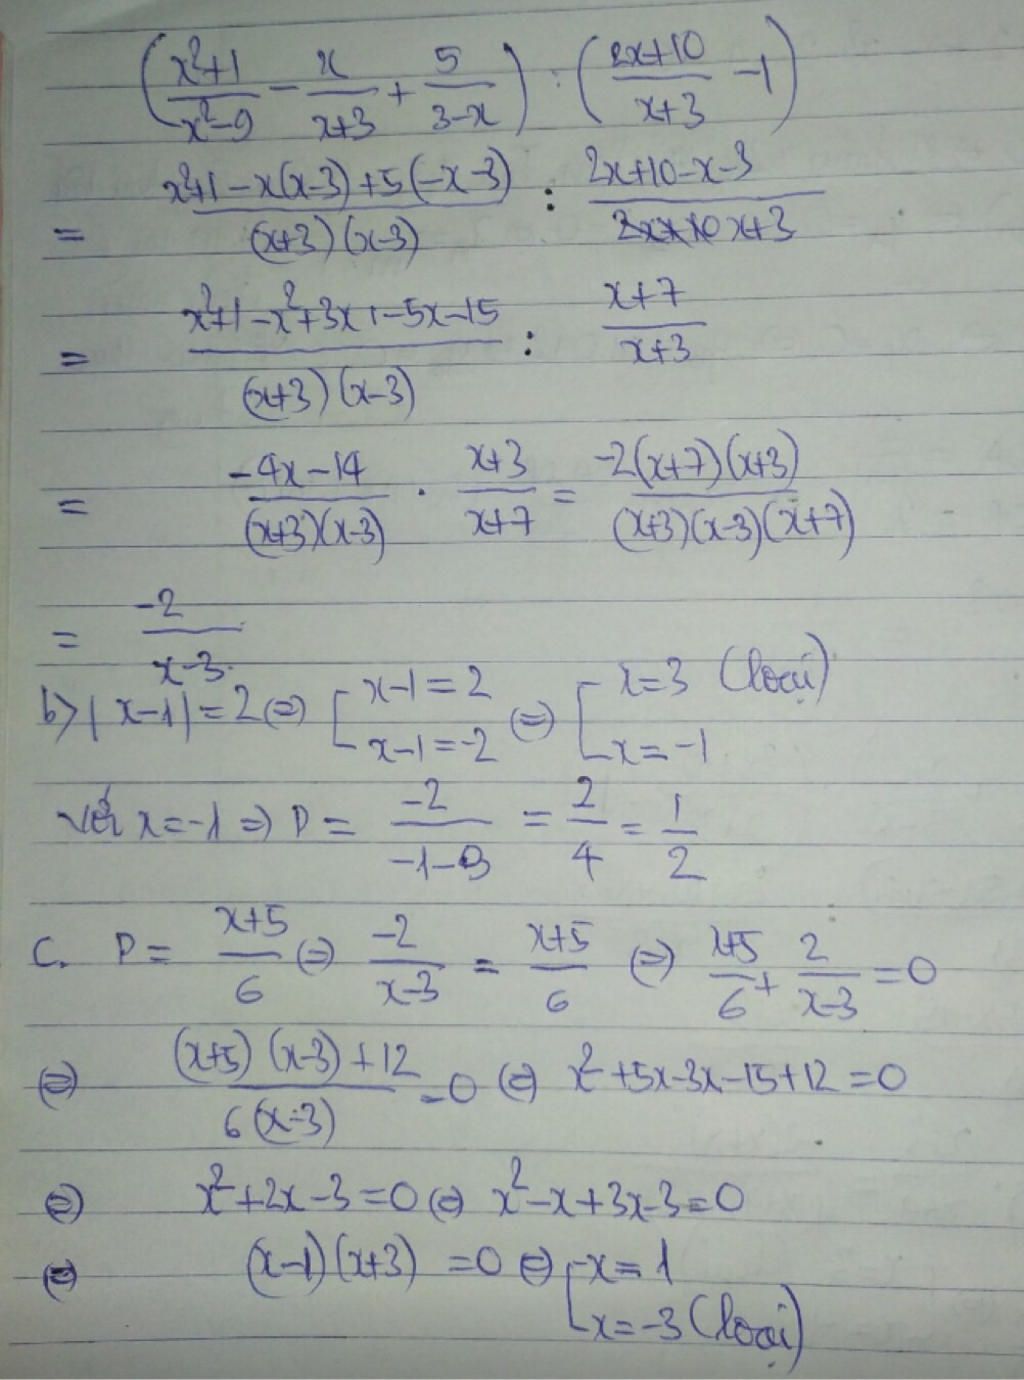 (x²+1/x²-9 - x/x+3 + 5/3-x) : (2x+10/x+3 - 1)
= x²+1-x(x-3)+5(-x-3)/(x+3)(x-3) : 2x+10-x-3/x+3
= x²+1-x²+3x+-5x-15/(x+3)(x-3) : x+7/x+3
= -4x-14/(x+3)(x-3) . x+3/x+7 = -2(x+7)(x+3)/(x+3)(x-3)(x+7)
= -2/x-3.
b> |x-1|=2 ⇔ [x-1=2 x-1=-2 ⇔ [x=3 (loại) x=-1
Với x=-1 ⇒ P = -2/-1-3 = 2/4 = 1/2
C. P = x+5/6 ⇔ -2/x-3 = x+5/6 ⇔ x+5/6 + 2/x-3 = 0
⇔ (x+5)(x-3)+12/6(x-3) = 0 ⇔ x²+5x-3x-15+12=0
⇔ x²+2x-3=0 ⇔ x²-x+3x-3=0
⇔ (x-1)(x+3) =0 ⇔ [x=1 x=-3 (loại)